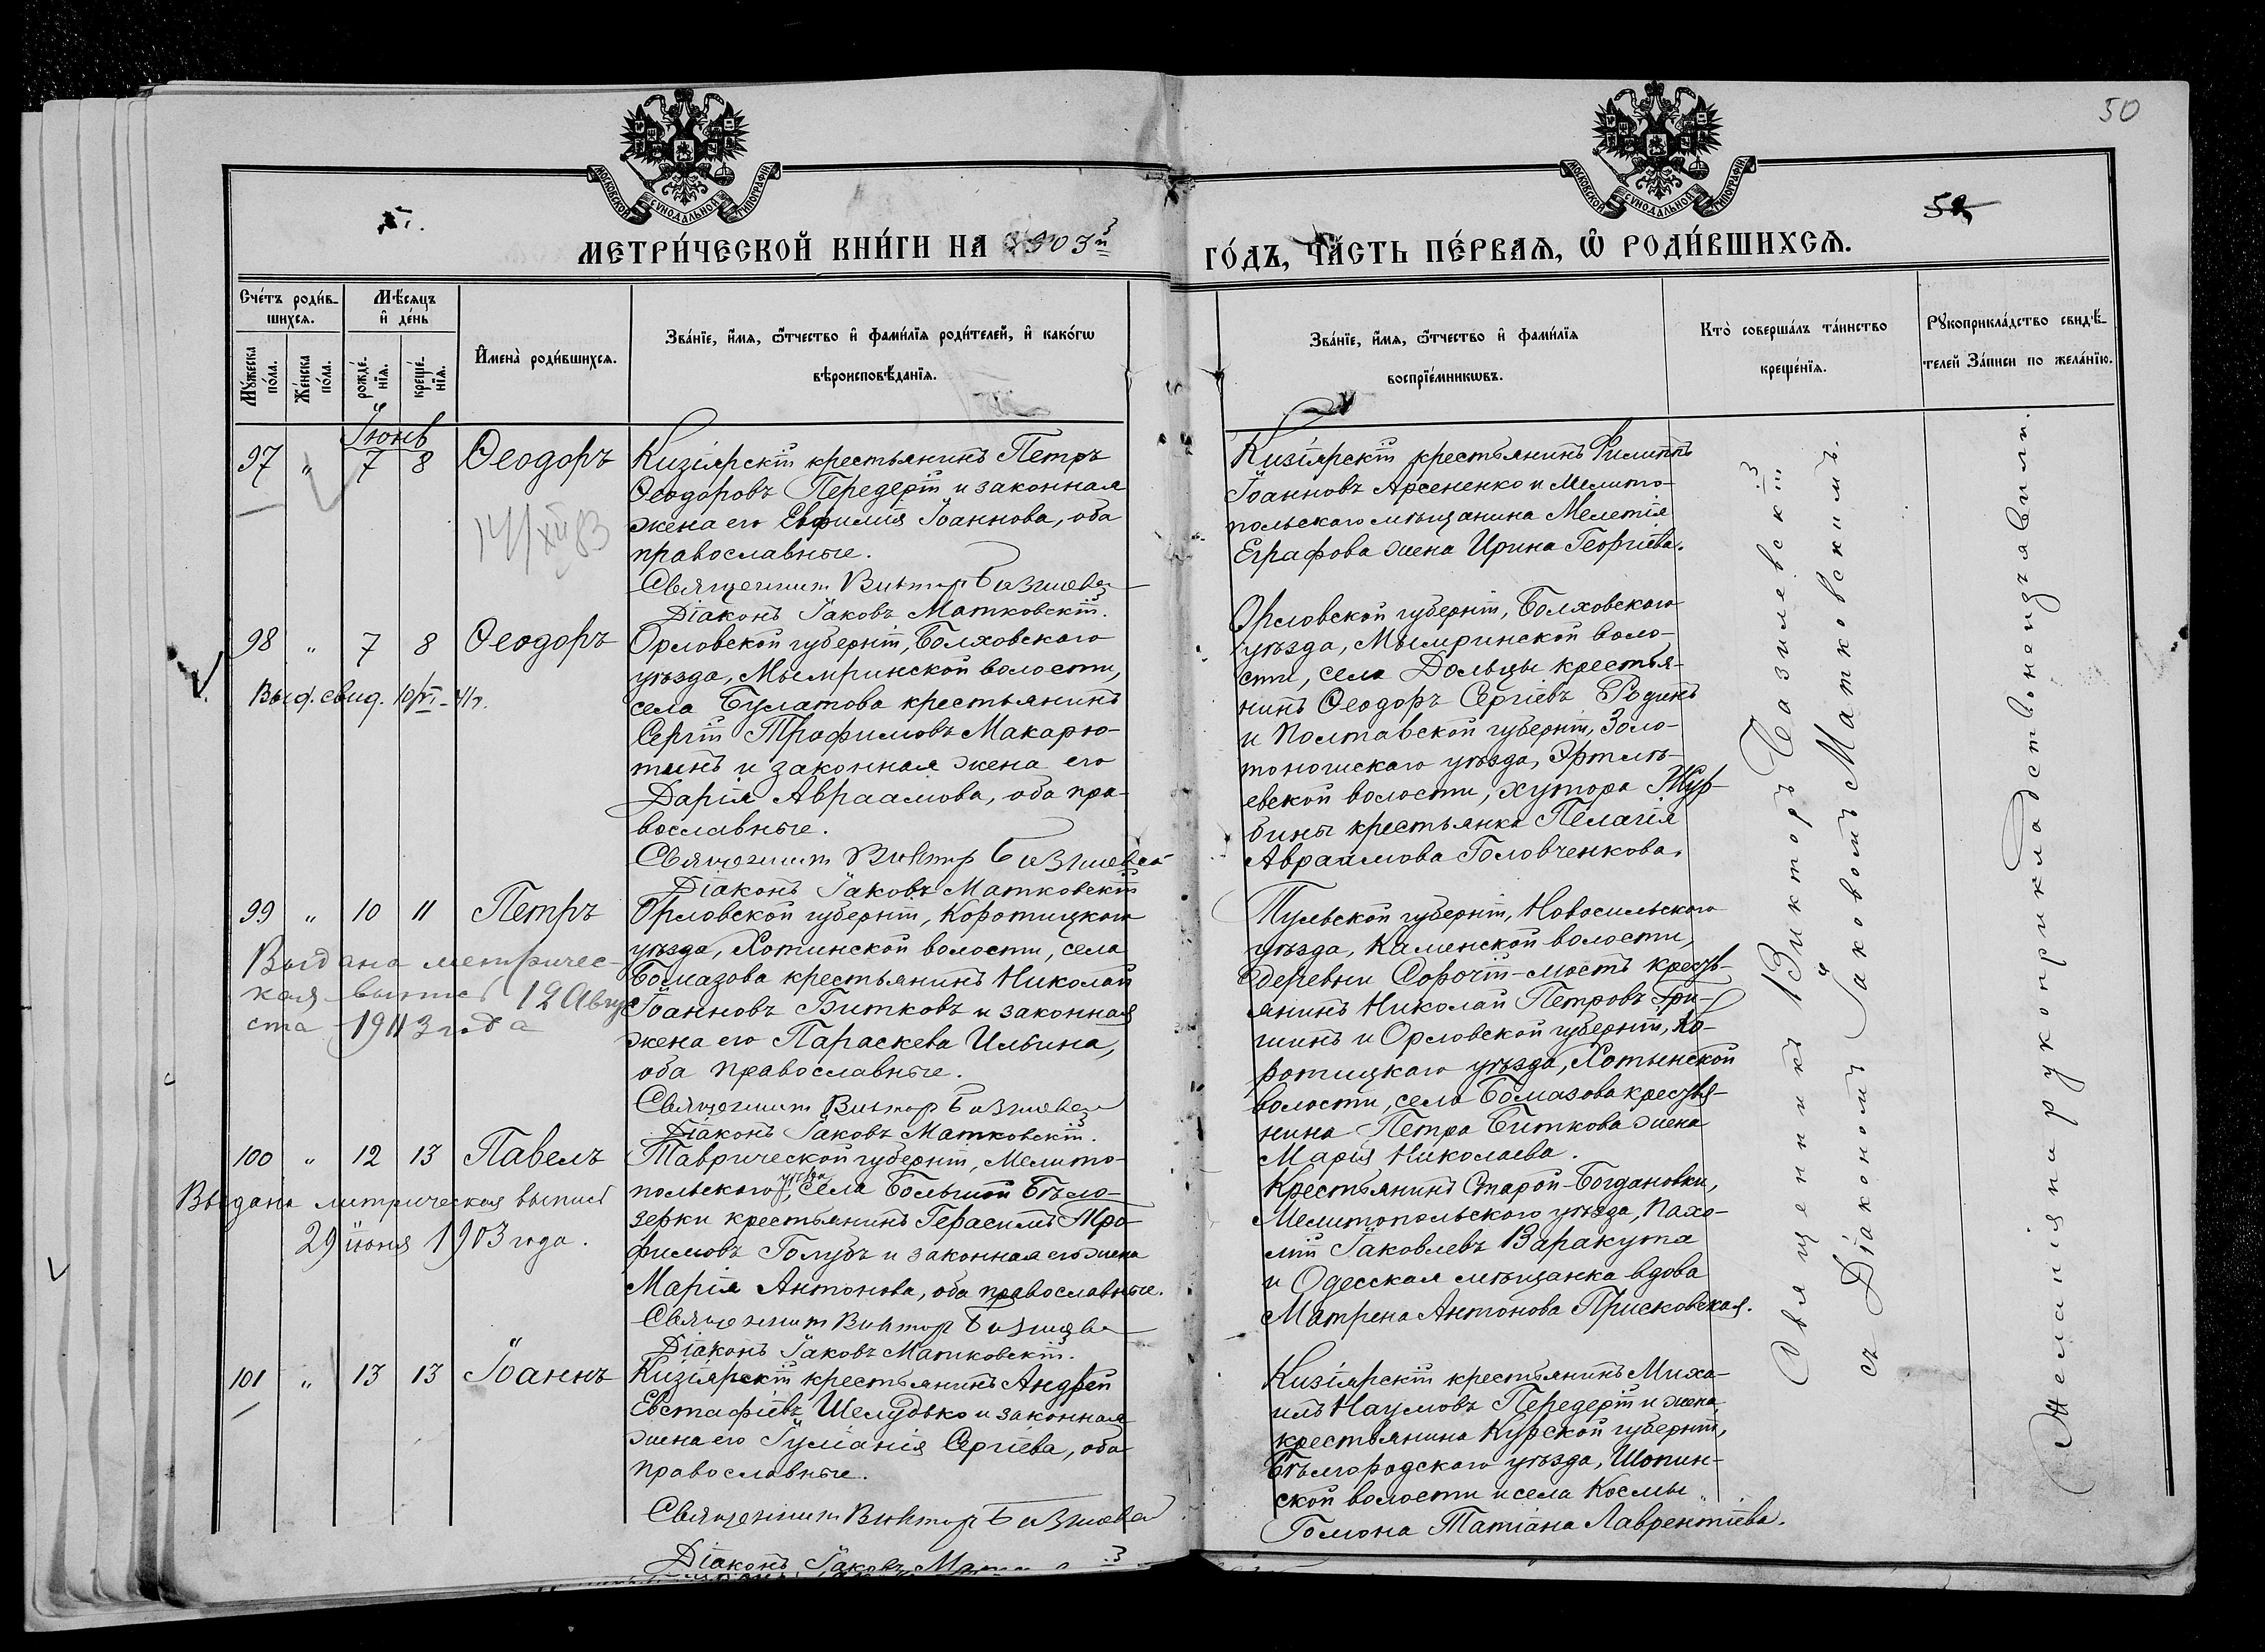 50
МОСКОВСКОЙ СѴНОДАЛЬНОЙ ТИПОГРАФІИ
МОСКОВСКОЙ СѴНОДАЛЬНОЙ ТИПОГРАФІИ
МЕТРИ́ЧЕСКОЙ КНИ́ГИ НА 1903й
ГО́ДЪ, ЧА́СТЬ ПЕ́РВАѦ, Ѡ҆ РОДИ́ВШИХСѦ.
Сче́тъ роди́в-
шихсѧ.
Мѣ́сѧцъ
и҆ де́нь
Мꙋ́жеска
по́ла.
Же́нска
по́ла.
рожде́-
нїѧ.
креще́-
нїѧ.
И҆мена̀ роди́вшихсѧ.
Зва́нїе, и҆́мѧ, ѻ҆́тчество и҆ фами́лїѧ роди́телей, и҆ како́гѡ
вѣроисповѣ́данїѧ.
Зва́нїе, и҆́мѧ, ѻ҆́тчество и҆ фами́лїѧ
воспрїе́мникѡвъ.
Кто̀ соверша́лъ та́инство
креще́нїѧ.
Рꙋкоприкла́дство свидѣ́-
телей За́писи по жела́нїю.
Іюнь
97 " 7 8 Ѳеодоръ
Кизіярскій крестьянинъ Петръ
Ѳеодоровъ Передерій и законная
жена его Евфимія Іоаннова, оба
православные.
Священникъ Викторъ Базилевскій
Діаконъ Іаковъ Матковскій.
Кизіярскій крестьянинъ Филиппъ
Іоанновъ Арсененко и Мелито-
польскаго мѣщанина Мелетія
Еграфова жена Ирина Георгіева.
98 " 7 8 Ѳеодоръ
Выд. свид.
Орловской губерніи, Болховского
уѣзда, Мымринской волости,
села Булатова крестьянинъ
Сергій Трофимовъ Макарю-
тинъ и законная жена его
Дарія Авраамова, оба пра-
вославные.
Священникъ Викторъ Базилевскій
Діаконъ Іаковъ Матковскій
Орловской губерніи, Болховскаго
уѣзда, Мымринской воло-
сти, села Дольцы крестья-
нинъ Ѳеодоръ Сергіевъ Родинъ
и Полтавской губерніи, Золо-
тоношскаго уѣзда,
евской волости, хутора
бины крестьянка Пелагія
Авраамова Головченкова.
99 " 10 11 Петръ
Выдана метричес-
кая выпись 12 Авгу
ста 1913 года
Орловской губерніи, Коротицкого
уѣзда, Хотинской волости, села
Бомазова крестьянинъ Николай
Іоанновъ Битковъ и законная
жена его Параскева Ильина,
оба православные.
Священникъ Викторъ Базилевскій
Діаконъ Іаковъ Матковскій.
Тульской губерніи, Новосильского
уѣзда, Каменской волости,
деревни Сорочій-мостъ кресть-
янинъ Николай Петровъ Гри-
шинъ и Орловской губерніи, Ко-
ротицкаго уѣзда, Хотынской
волости, села Бомазова крестья-
нина Петра Биткова жена
Марія Николаева.
100 " 12 13 Павелъ
Выдана метрическая выпись
29 іюня 1903 года.
Таврической губерніи, Мелито-
польского уѣзда, села Большой Бѣло-
зерки крестьянинъ Герасимъ Тро-
фимовъ Голубъ и законная его жена
Марія Антонова, оба православные.
Священникъ Викторъ Базилевскій
Діаконъ Іаковъ Матковскій.
Крестьянинъ Старой-Богдановки,
Мелитопольского уѣзда, Пахо-
мій Іаковлевъ Варакута
и Одесская мѣщанка вдова
Матрена Антонова Присковская.
101 " 13 13 Іоаннъ
Кизіярскій крестьянинъ Андрей
Евстафіевъ Шелудько и законная
жена его Іуліанія Сергіева, оба
православные.
Священникъ Викторъ Базилевскій
Діаконъ Іаковъ
Кизіярскій крестьянинъ Миха-
илъ Наумовъ Передерій и жена
крестьянина Курской губерніи,
Бѣлгородскаго уѣзда, Шопин-
ской волости и села Космы
Гомона Татіана Лаврентіева.
Священникъ Викторъ Базилевскій
съ Діакономъ Іаковомъ Матковскимъ.
Желанія на рукоприкладство не изъявили.